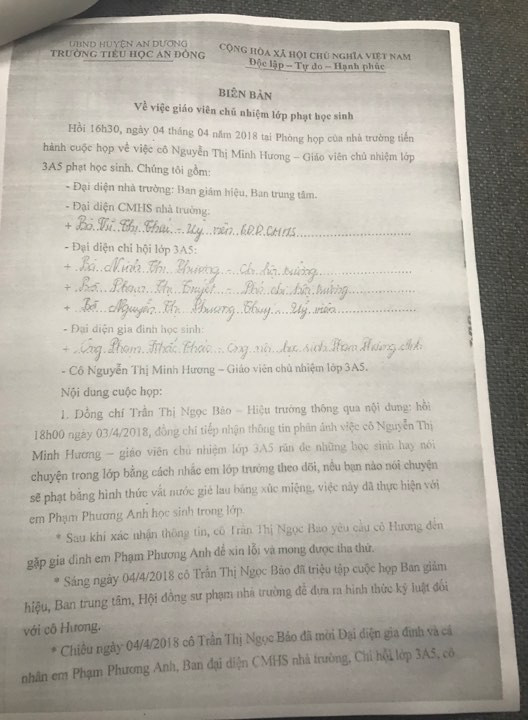 UBND HUYỆN AN DƯƠNG
TRƯỜNG TIỂU HỌC AN ĐỒNG
CỘNG HÒA XÃ HỘI CHỦ NGHĨA VIỆT NAM
Độc lập – Tự do – Hạnh phúc
BIÊN BẢN
Về việc giáo viên chủ nhiệm lớp phạt học sinh
Hồi 16h30, ngày 04 tháng 04 năm 2018 tại Phòng họp của nhà trường tiến
hành cuộc họp về việc cô Nguyễn Thị Minh Hương – Giáo viên chủ nhiệm lớp
3A5 phạt học sinh. Chúng tôi gồm:
- Đại diện nhà trường: Ban giám hiệu, Ban trung tâm.
- Đại diện CMHS nhà trường:
+ Bà Vũ Thị Thái - Uỷ viên CMHS
- Đại diện chi hội lớp 3A5:
+ Bà Thị Phương - Chi hội trưởng
+ Bà Phạm Thị Tuyết - Phó chi hội trưởng
+ Bà Nguyễn Thị Phương Thuý - Uỷ viên
- Đại diện gia đình học sinh:
+ Ông Phạm Khắc - Ông nội học sinh Phạm Phương Anh
- Cô Nguyễn Thị Minh Hương – Giáo viên chủ nhiệm lớp 3A5.
Nội dung cuộc họp:
1. Đồng chí Trần Thị Ngọc Bảo – Hiệu trưởng thông qua nội dung: hồi
18h00 ngày 03/4/2018, đồng chí tiếp nhận thông tin phản ánh việc cô Nguyễn Thị
Minh Hương – giáo viên chủ nhiệm lớp 3A5 răn đe những học sinh hay nói
chuyện trong lớp bằng cách nhắc em lớp trưởng theo dõi, nếu bạn nào nói chuyện
sẽ phạt bằng hình thức vắt nước giẻ lau bảng xúc miệng, việc này đã thực hiện với
em Phạm Phương Anh học sinh trong lớp.
* Sau khi xác nhận thông tin, cô Trần Thị Ngọc Bảo yêu cầu cô Hương đến
gặp gia đình em Phạm Phương Anh để xin lỗi và mong được tha thứ.
* Sáng ngày 04/4/2018 cô Trần Thị Ngọc Bảo đã triệu tập cuộc họp Ban giám
hiệu, Ban trung tâm, Hội đồng sư phạm nhà trường để đưa ra hình thức kỷ luật đối
với cô Hương.
* Chiều ngày 04/4/2018 cô Trần Thị Ngọc Bảo đã mời Đại diện gia đình và cá
nhân em Phạm Phương Anh, Ban đại diện CMHS nhà trường, Chi hội lớp 3A5, cô